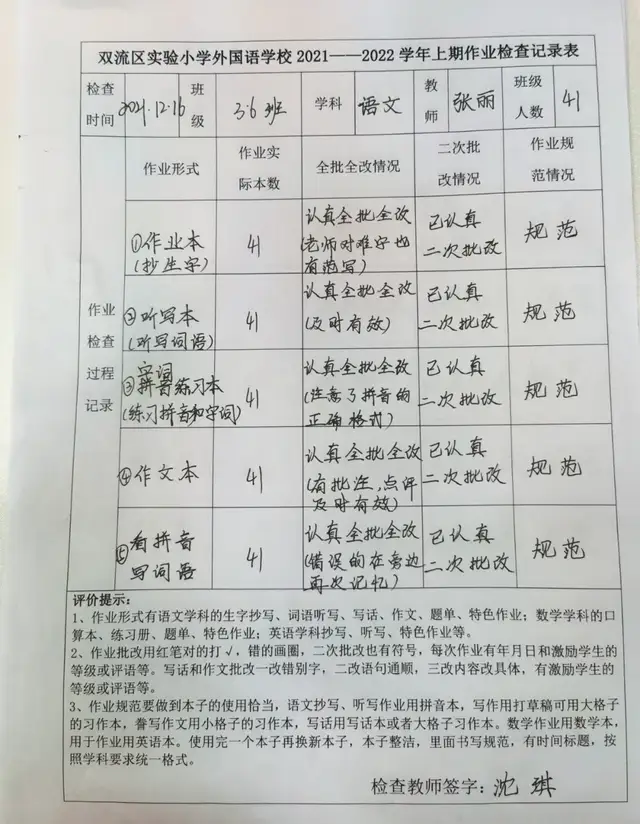 双流区实验小学外国语学校2021——2022学年上期作业检查记录表
检查时间 2021.12.16 班级 3.6班 学科 语文 教师 张丽 班级人数 41
作业检查过程记录
作业形式 作业实际本数 全批全改情况 二次批改情况 作业规范情况
①作业本(抄生字) 41 认真全批全改(老师对难字也有范写) 已认真二次批改 规范
②听写本(听写词语) 41 认真全批全改(及时有效) 已认真二次批改 规范
③字词拼音练习本(练习拼音和字词) 41 认真全批全改(注意了拼音的正确格式) 已认真二次批改 规范
④作文本 41 认真全批全改(有批注,点评及时有效) 已认真二次批改 规范
⑤看拼音写词语 41 认真全批全改(错误的在旁边再次记忆) 已认真二次批改 规范
评价提示:
1、作业形式有语文学科的生字抄写、词语听写、写话、作文、题单、特色作业;数学学科的口
算本、练习册、题单、特色作业;英语学科抄写、听写、特色作业等。
2、作业批改用红笔对的打√,错的画圈,二次批改也有符号,每次作业有年月日和激励学生的
等级或评语等。写话和作文批改一改错别字,二改语句通顺,三改内容改具体,有激励学生的
等级或评语等。
3、作业规范要做到本子的使用恰当,语文抄写、听写作业用拼音本,写作用打草稿可用大格子
的习作本,誊写作文用小格子的习作本,写话用写话本或者大格子习作本。数学作业用数学本,
用于作业用英语本。使用完一个本子再换新本子,本子整洁,里面书写规范,有时间标题,按
照学科要求统一格式。
检查教师签字:沈琪